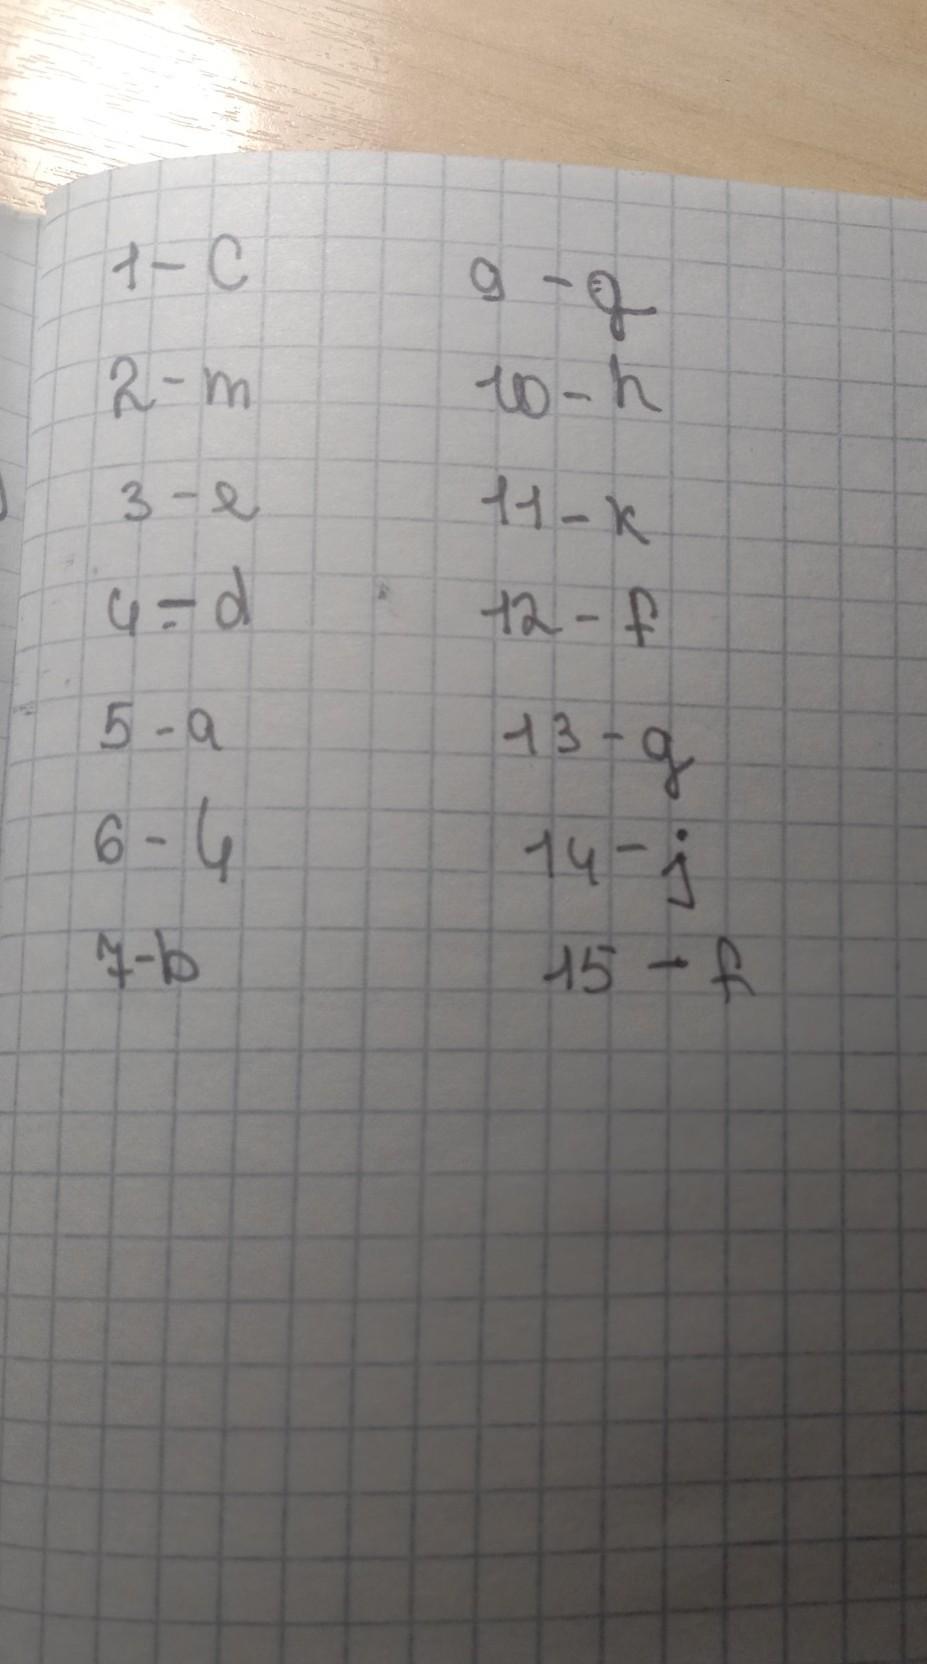 1 - C
2 - m
3 - e
4 = d
5 - a
6 - 4
7 - b
9 - g
10 - h
11 - k
12 - f
13 - g
14 - j
15 - f